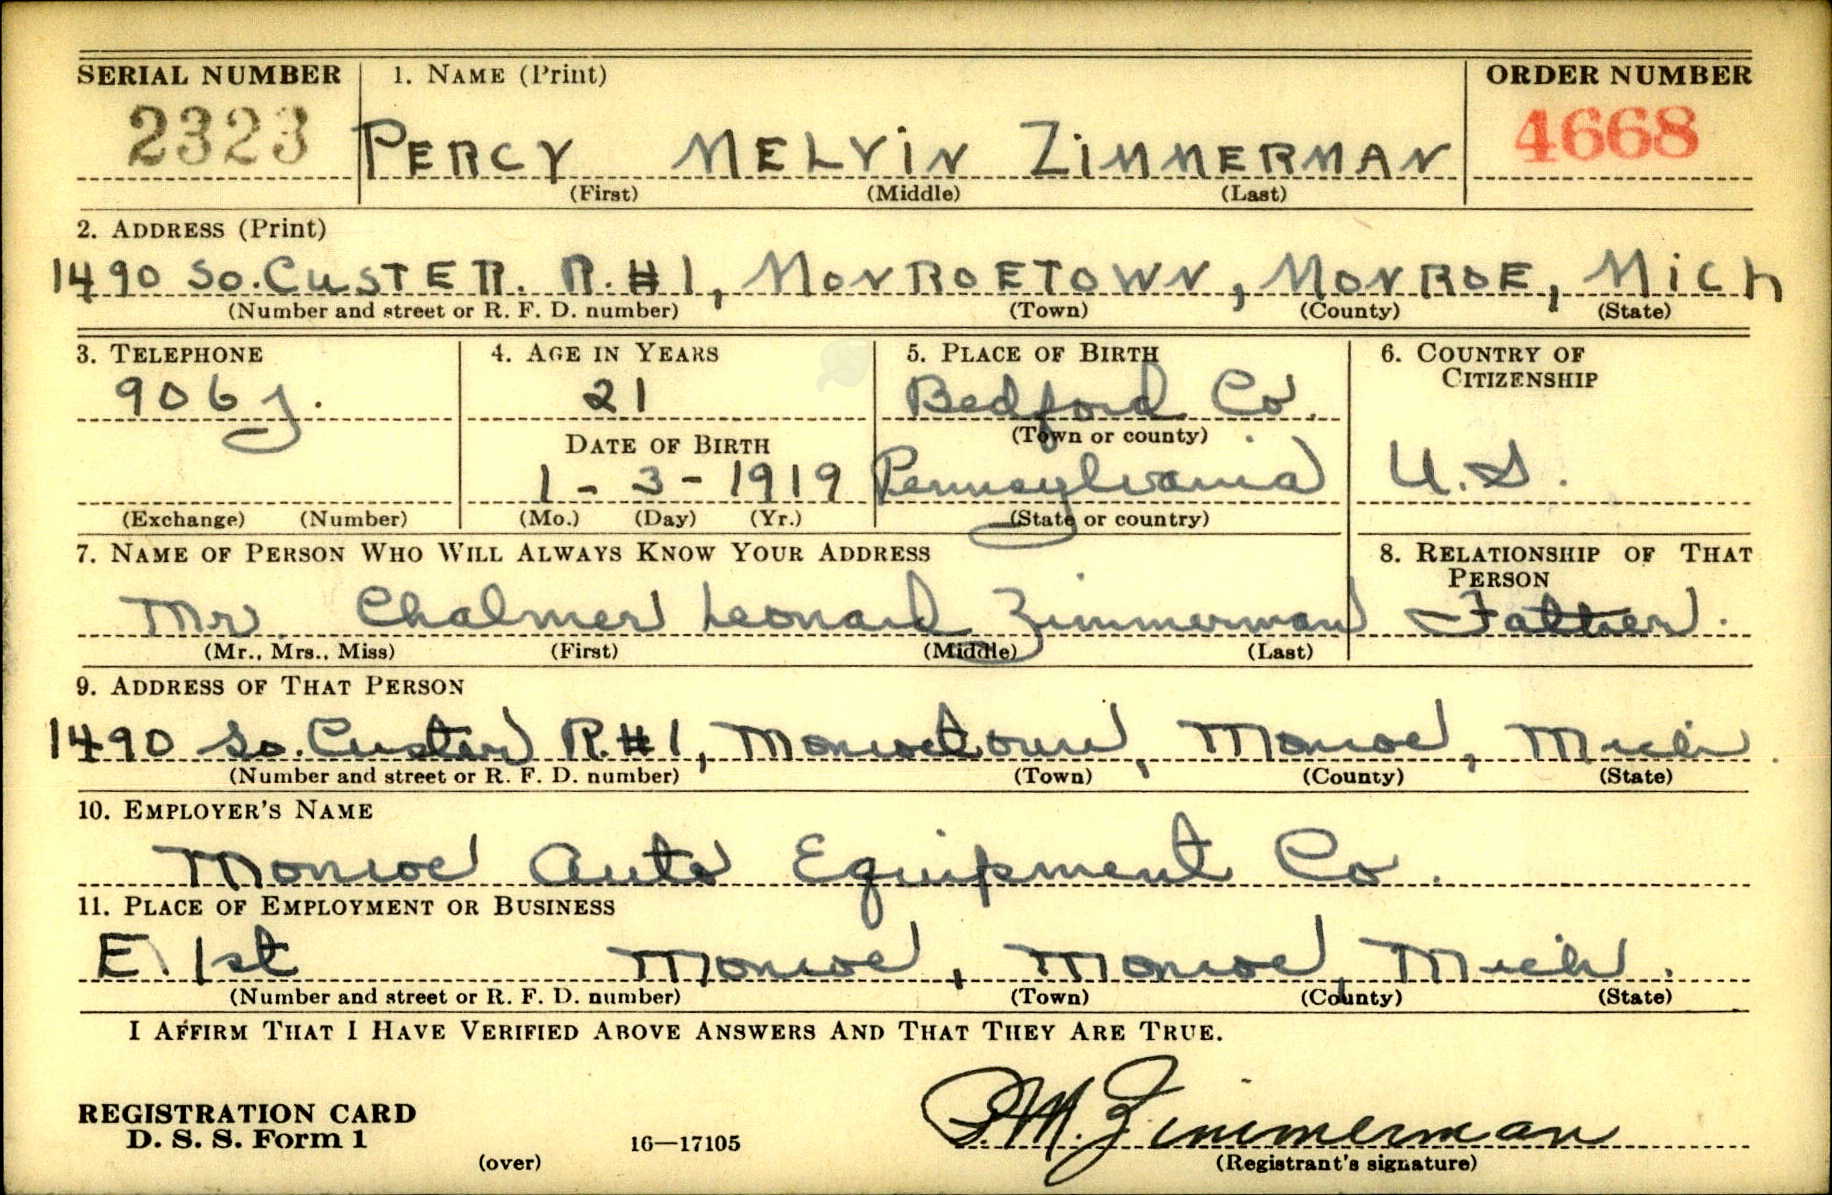 SERIAL NUMBER 1. NAME (Print) ORDER NUMBER
2323 PERCY MELVIN ZIMMERMAN 4668
(First) (Middle) (Last)
2. ADDRESS (Print)
1490 So. CUSTER. R.#1, MONROETOWN, MONROE, MICH
(Number and street or R. F. D. number) (Town) (County) (State)
3. TELEPHONE 4. AGE IN YEARS 5. PLACE OF BIRTH 6. COUNTRY OF CITIZENSHIP
906 J. 21 Bedford Co.
DATE OF BIRTH (Town or county)
1 - 3 - 1919 Pennsylvania U.S.
(Exchange) (Number) (Mo.) (Day) (Yr.) (State or country)
7. NAME OF PERSON WHO WILL ALWAYS KNOW YOUR ADDRESS 8. RELATIONSHIP OF THAT PERSON
Mr. Chalmer Leonard Zimmerman Father.
(Mr., Mrs., Miss) (First) (Middle) (Last)
9. ADDRESS OF THAT PERSON
1490 So. Custer R.#1, Monroetown, Monroe, Mich.
(Number and street or R. F. D. number) (Town) (County) (State)
10. EMPLOYER'S NAME
Monroe Auto Equipment Co.
11. PLACE OF EMPLOYMENT OR BUSINESS
E. 1st Monroe, Monroe, Mich.
(Number and street or R. F. D. number) (Town) (County) (State)
I AFFIRM THAT I HAVE VERIFIED ABOVE ANSWERS AND THAT THEY ARE TRUE.
REGISTRATION CARD
D. S. S. Form 1 16—17105 P. M. Zimmerman
(over) (Registrant's signature)